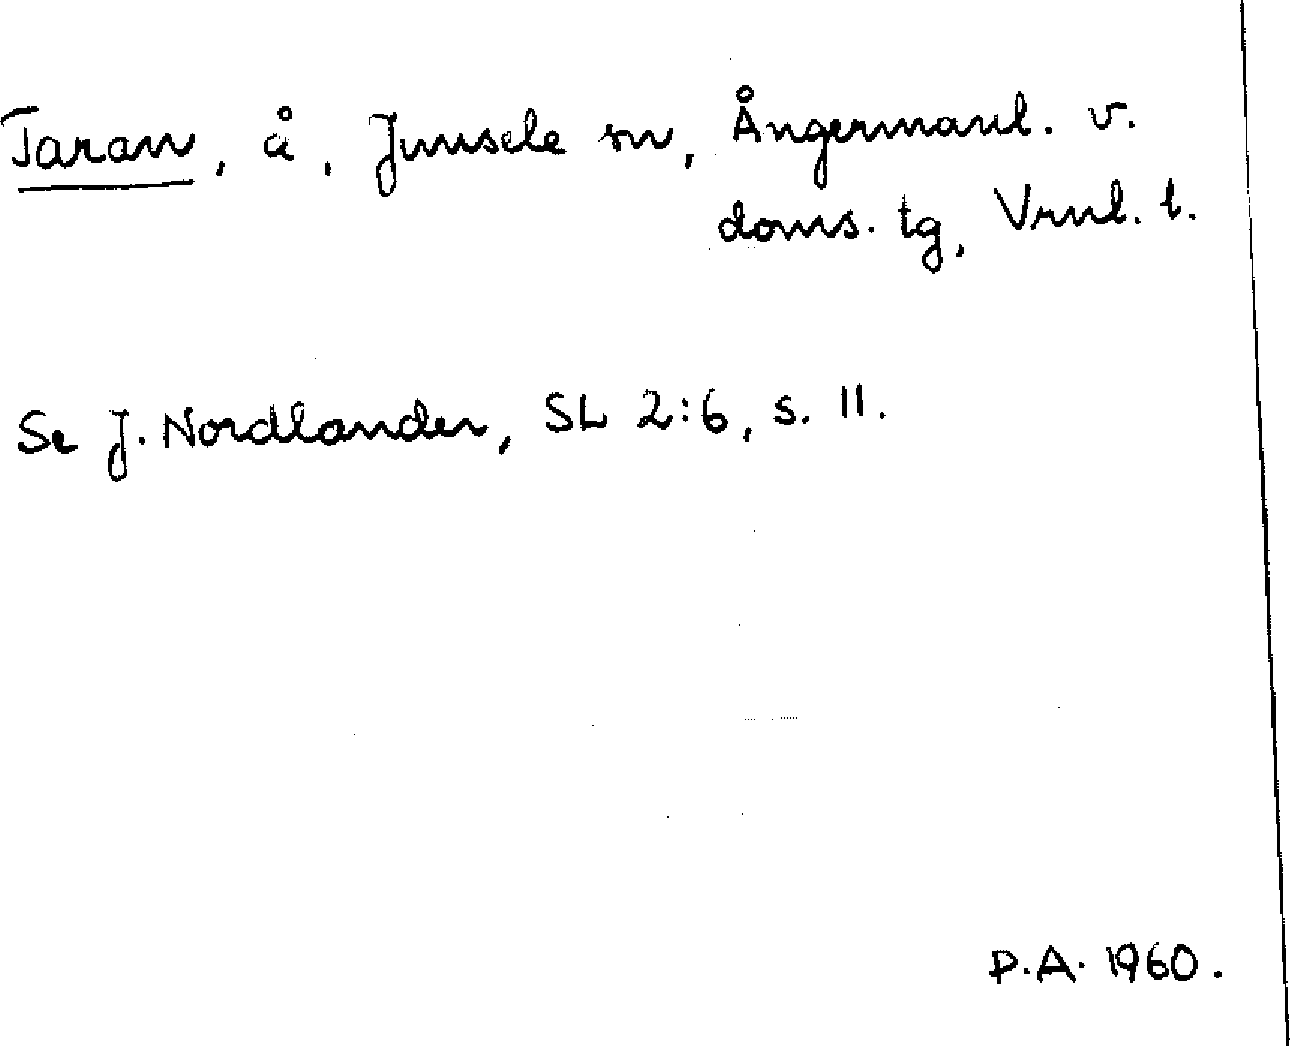 Taran, å, Junsele sn, Ångermanl. v.
doms. tg, Vrnl. l.
Se J. Nordlander, SL 2:6, s. 11.
P.A. 1960.